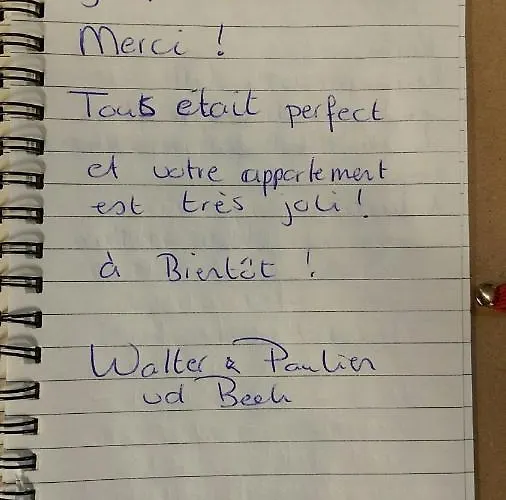 Merci !
Touts était perfect
et votre appartement
est très joli !
à Bientôt !
Walter & Paulien
vd Beek